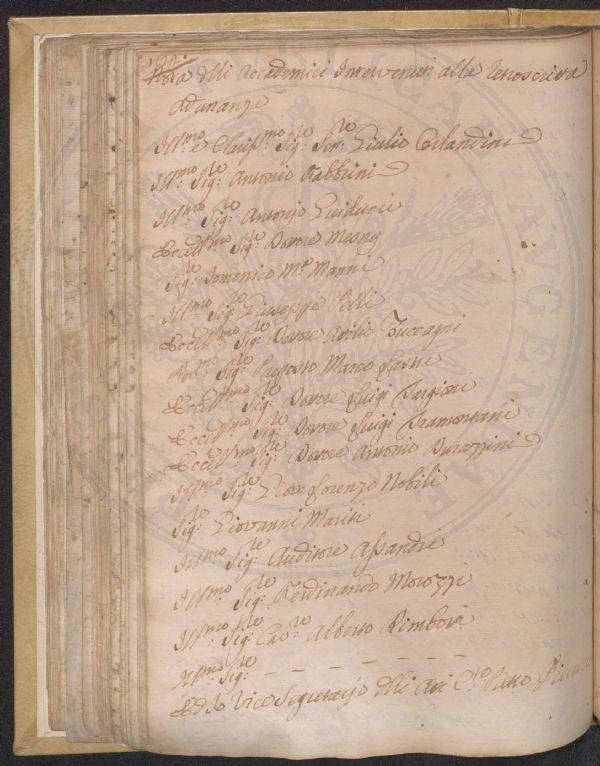 Nota dlli Accademici Intervenuti alla retroscritta
Adunanze
Ill:mo e Clariss:mo Sig:re Sen:re Giulio Orlandini
Ill:mo Sig:re Antonio Fabbrini
Ill:mo Sig:re Antonio Guiducci
Eccell:mo Sig:re Dottore Mesny
Sig:re Domenico M:a Manni
Ill:mo Sig:re Giuseppe Pelli
Eccell:mo Sig:re Dottore Attilio Zuccagni
Sig:re Proposto Marco Lastri
Eccell:mo Sig:re Dottore Luigi Targioni
Eccell:mo Sig:re Dottore Luigi Tramontani
Eccell:mo Sig:re Dottore Antonio Durazzini
Ill:mo Sig:re Giov: Lorenzo Nobili
Sig:re Giovanni Mariti
Ill:mo Sig:re Auditore Assandri
Ill:mo Sig:re Ferdinando Morozzi
Ill:mo Sig:re Cav:re Alberto Rimbotti
Ill:mo Sig:re _ _ _ _ _ _
Ed Io Vice Segretario dlli Atti Pietro